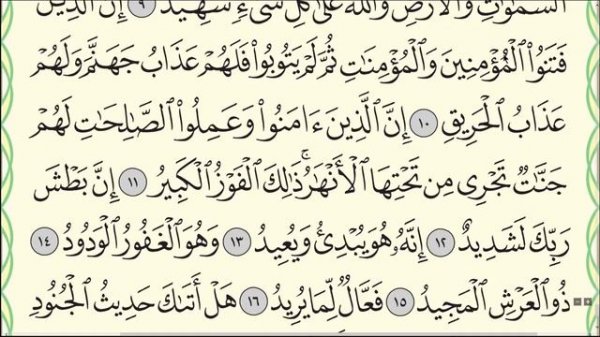 السَّمَٰوَٰتِ وَالْأَرْضِ وَاللَّهُ عَلَىٰ كُلِّ شَيْءٍ شَهِيدٌ ٩ إِنَّ الَّذِينَ
فَتَنُوا الْمُؤْمِنِينَ وَالْمُؤْمِنَٰتِ ثُمَّ لَمْ يَتُوبُوا فَلَهُمْ عَذَابُ جَهَنَّمَ وَلَهُمْ
عَذَابُ الْحَرِيقِ ١٠ إِنَّ الَّذِينَ ءَامَنُوا وَعَمِلُوا الصَّٰلِحَٰتِ لَهُمْ
جَنَّٰتٌ تَجْرِي مِن تَحْتِهَا الْأَنْهَٰرُ ۚ ذَٰلِكَ الْفَوْزُ الْكَبِيرُ ١١ إِنَّ بَطْشَ
رَبِّكَ لَشَدِيدٌ ١٢ إِنَّهُۥ هُوَ يُبْدِئُ وَيُعِيدُ ١٣ وَهُوَ الْغَفُورُ الْوَدُودُ ١٤
ذُو الْعَرْشِ الْمَجِيدُ ١٥ فَعَّالٌ لِّمَا يُرِيدُ ١٦ هَلْ أَتَىٰكَ حَدِيثُ الْجُنُودِ